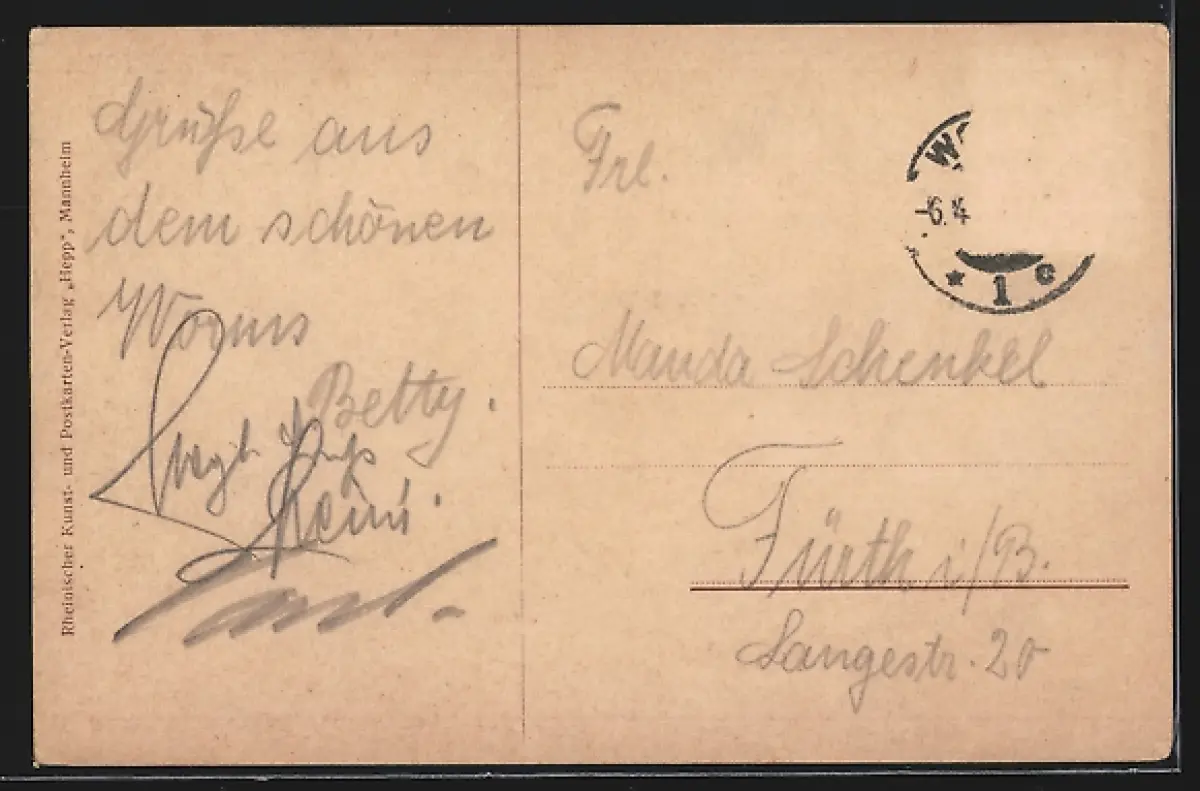 Rheinischer Kunst- und Postkarten-Verlag „Hepp“, Mannheim
Grüße aus
dem schönen
Worms
Betty.
Gruß
Frl.
Manda Schenkel
Fürth i/B.
Langestr. 20
W
-6.4
* 1 c